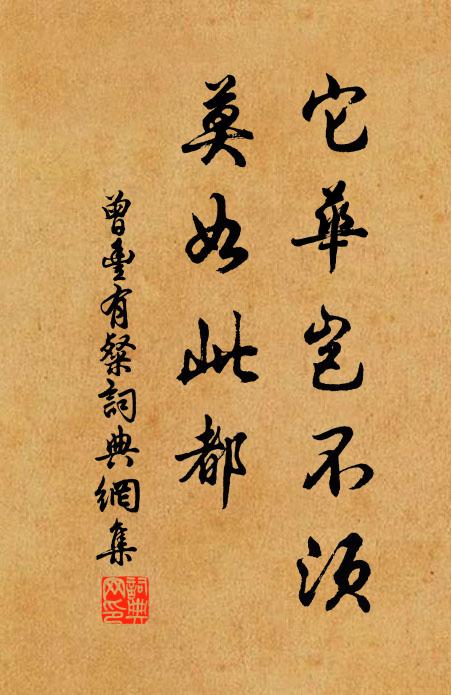 它華豈不須
莫如此都
曾豐有粲詞典網集
詞典网印